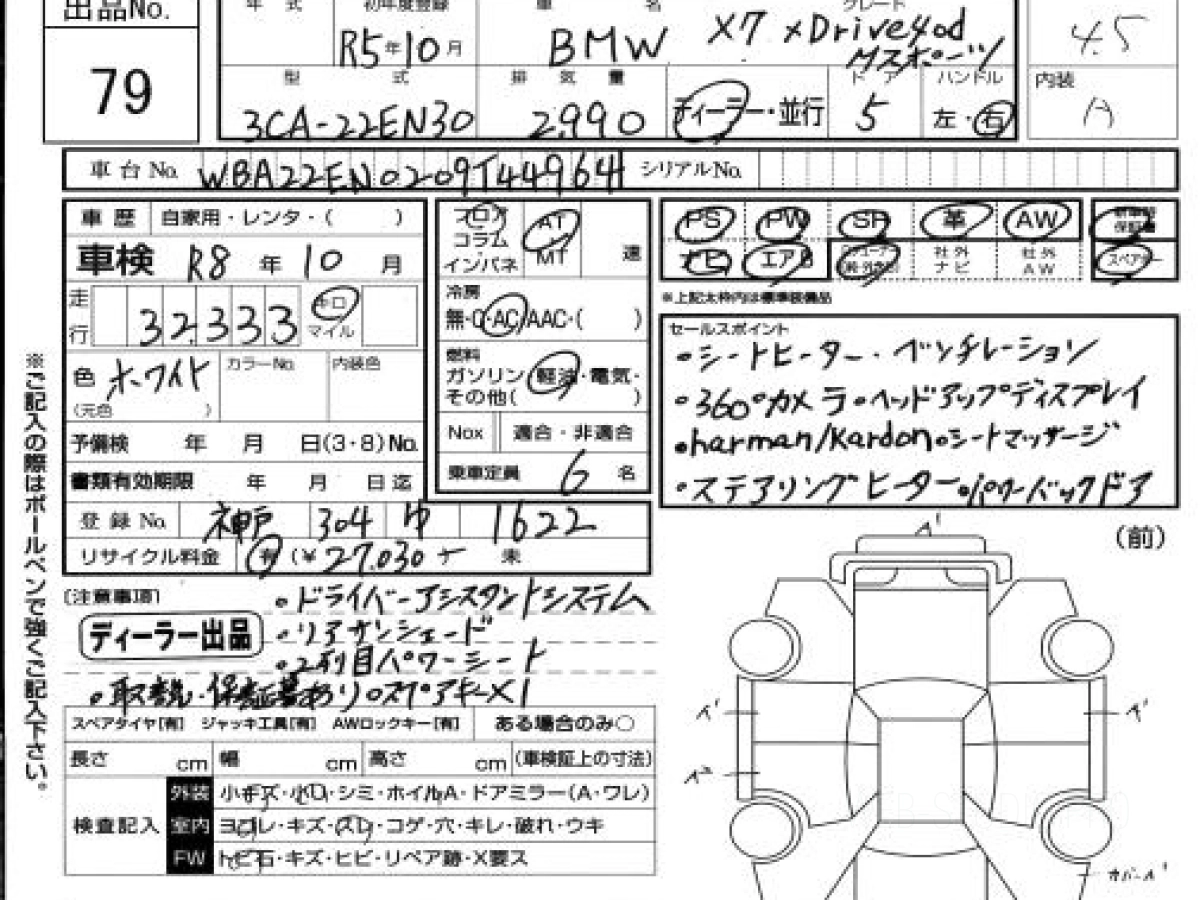 出品No. 79
年式 初年度登録 R5年10月
車名 BMW X7 xDrive40d
グレード Mスポーツ
4.5
型式 3CA-22EN30
排気量 2990
ディーラー・並行
ドア 5
ハンドル 左・右
内装 A
車台No. WBA22EN0209T44964 シリアルNo.
車歴 自家用・レンタ・( )
車検 R8年10月
走行 32,333 キロ マイル
色 ホワイト カラーNo. 内装色
(元色 )
予備検 年 月 日(3・8)No.
書類有効期限 年 月 日迄
登録No. 神戸 304 ゆ 1622
リサイクル料金 有 (¥27,030 未
フロア コラム インパネ
AT MT 速
冷房
無・C・AC/AAC・( )
燃料
ガソリン・軽油・電気・
その他( )
Nox 適合・非適合
乗車定員 6 名
PS PW SR 革 AW
新車時保証書
ナビ エアB 社外ナビ 社外AW スペアキー
※上記太枠内は標準装備品
セールスポイント
・シートヒーター・ベンチレーション
・360°カメラ・ヘッドアップディスプレイ
・harman/kardon・シートマッサージ
・ステアリングヒーター・パワーバックドア
※ご記入の際はボールペンで強くご記入下さい。
[注意事項]
・ドライバーアシスタントシステム
ディーラー出品
・リアサンシェード
・2列目パワーシート
・取説・保証書あり・スペアキー×1
スペアタイヤ[有] ジャッキ工具[有] AWロックキー[有] ある場合のみ○
長さ cm 幅 cm 高さ cm (車検証上の寸法)
検査記入
外装 小キズ・小凹・シミ・ホイルA・ドアミラー(A・ワレ)
室内 ヨゴレ・キズ・スレ・コゲ・穴・キレ・破れ・ウキ
FW トビ石・キズ・ヒビ・リペア跡・X要ス
(前)
A'
A'
A'
A²
カバーA'